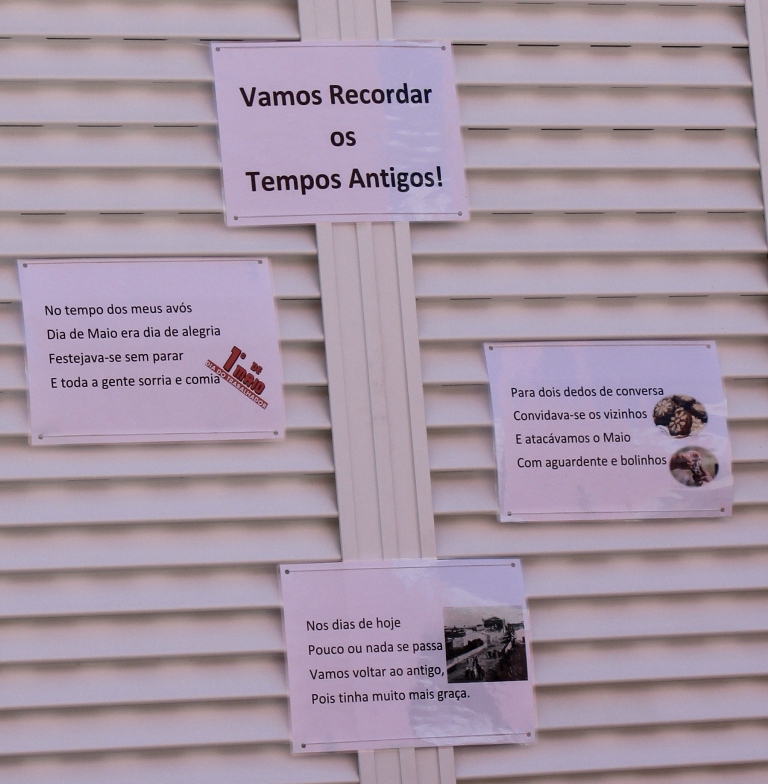 Vamos Recordar
os
Tempos Antigos!
No tempo dos meus avós
Dia de Maio era dia de alegria
Festejava-se sem parar
E toda a gente sorria e comia
1º DE
MAIO
DIA DO TRABALHADOR
Para dois dedos de conversa
Convidava-se os vizinhos
E atacávamos o Maio
Com aguardente e bolinhos
Nos dias de hoje
Pouco ou nada se passa
Vamos voltar ao antigo,
Pois tinha muito mais graça.